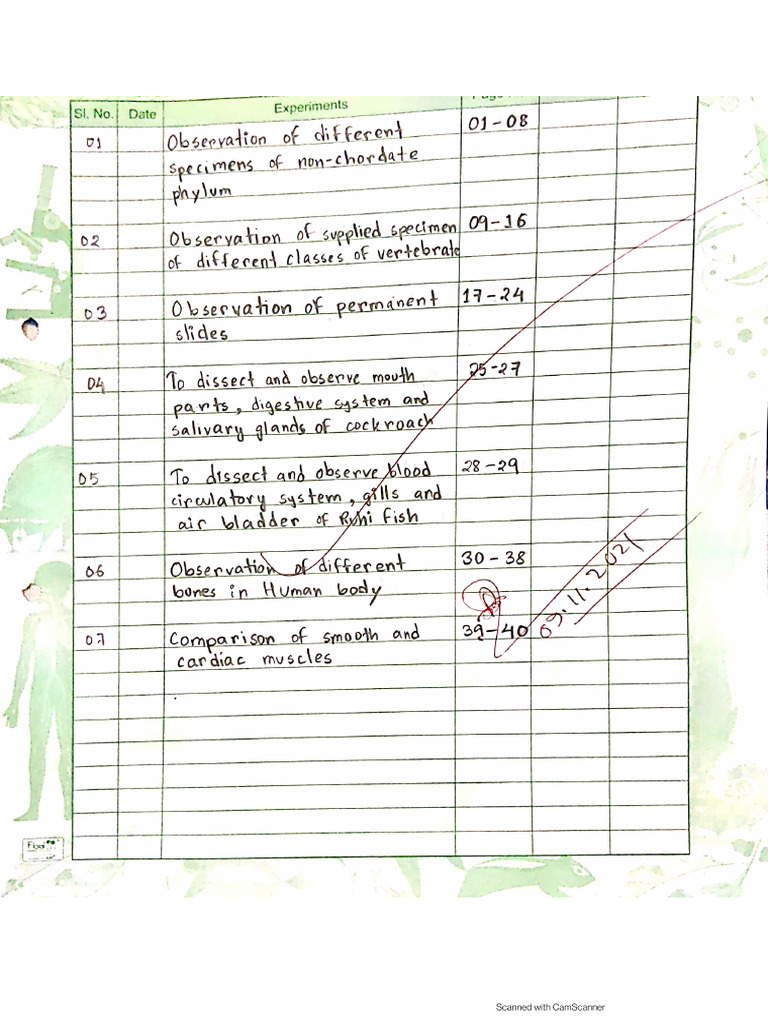 Sl. No. Date Experiments
01 Observation of different 01-08
specimens of non-chordate
phylum
02 Observation of supplied specimen 09-16
of different classes of vertebrate
03 Observation of permanent 17-24
slides
04 To dissect and observe mouth 25-27
parts, digestive system and
salivary glands of cockroach
05 To dissect and observe blood 28-29
circulatory system, gills and
air bladder of Ruhi fish
06 Observation of different 30-38
bones in Human body
07 Comparison of smooth and 39-40
cardiac muscles
09.11.2021
Scanned with CamScanner